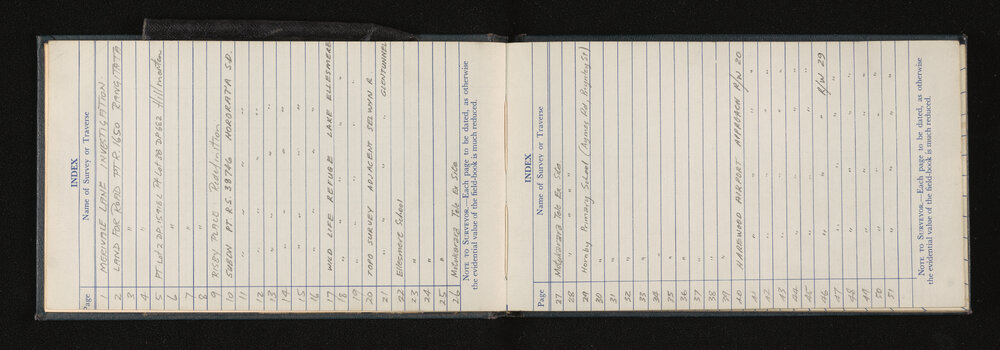 INDEX
Page Name of Survey or Traverse
1 MERIVALE LANE INVESTIGATION
2 LAND FOR ROAD PT R. 1650 RANGITATA
3 "
4 "
5 PT Lot 2 DP. 15916 L Pt Lot 38 DP 662 Hillmorton
6 "
7 "
8 "
9 RISEY PLACE Redefinition
10 SUBDN PT. R.S. 38746 HORORATA S.D.
11 " " " " "
12 " " " " "
13 " " " " "
14 " " " " "
15 " " " " "
16 " " " " "
17 WILD LIFE REFUGE LAKE ELLESMERE
18 " " " "
19 " " " "
20 TOPO SURVEY ADJACENT SELWYN R.
21 " " " " GLENTUNNEL
22 Ellesmere School
23 "
24 "
25 "
26 Motukarara Tele Ex Site
NOTE TO SURVEYOR.—Each page to be dated, as otherwise
the evidential value of the field-book is much reduced.
INDEX
Page Name of Survey or Traverse
27 Motukarara Tele Ex Site.
28 " " "
29 Hornby Primary School (Aymes Rd, Brynley St)
30 "
31 "
32 "
33 "
34 "
35 "
36 "
37 "
38 "
39 "
40 HAREWOOD AIRPORT APPROACH R/W 20
41 " " " "
42 " " " "
43 " " " "
44 " " " "
45 " " " "
46 " " " R/W 29
47 " " " "
48 " " " "
49 " " " "
50 " " " "
51 " " " "
NOTE TO SURVEYOR.—Each page to be dated, as otherwise
the evidential value of the field-book is much reduced.